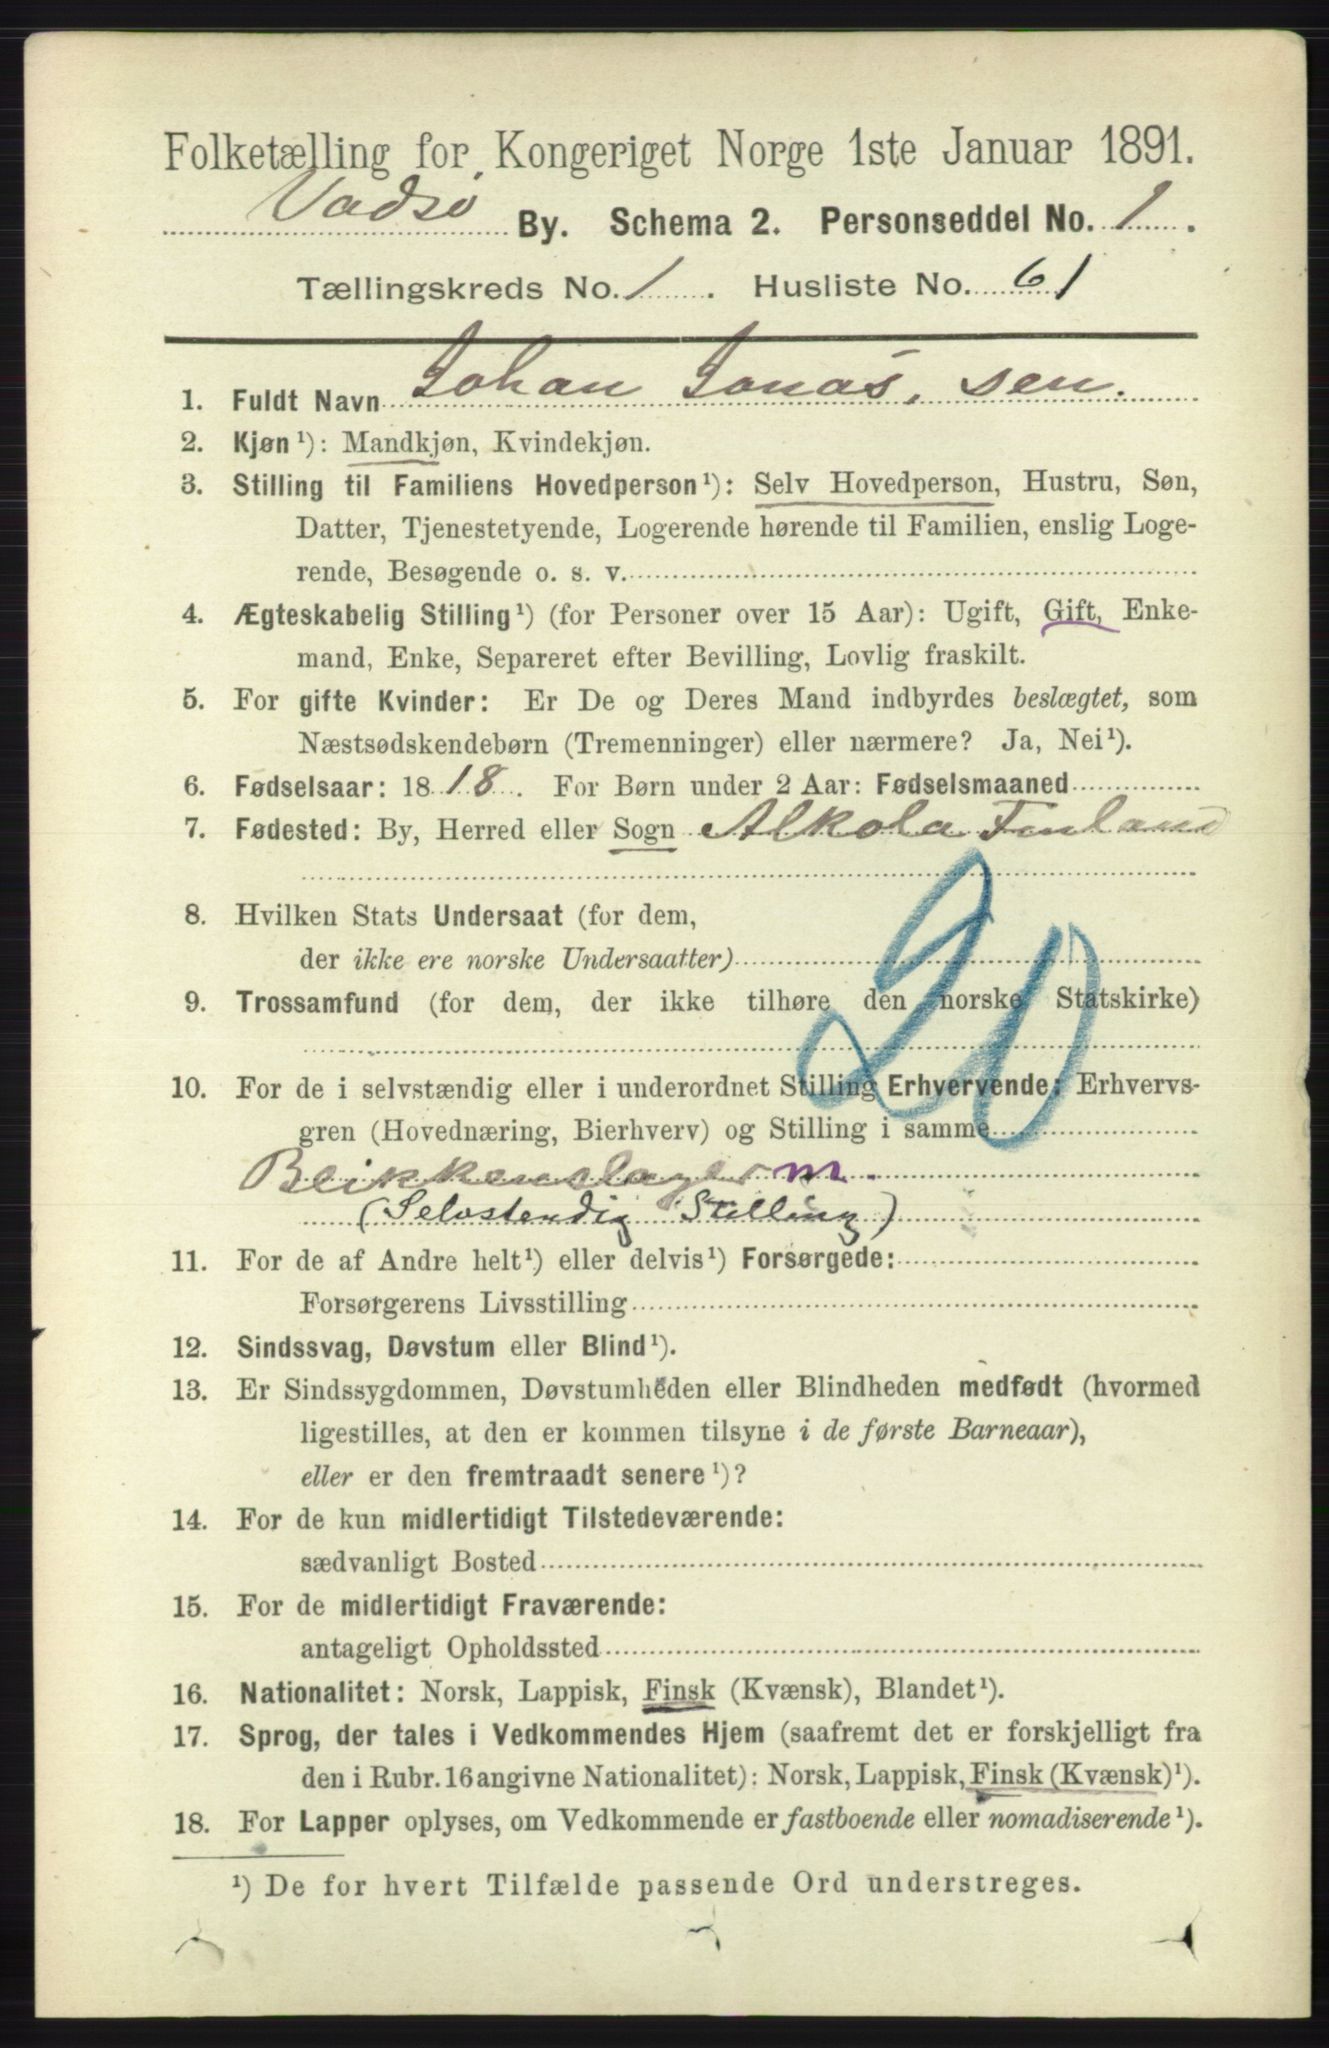 Folketælling for Kongeriget Norge 1ste Januar 1891.
Vadsö By. Schema 2. Personseddel No. 1.
Tællingskreds No. 1. Husliste No. 61
1. Fuldt Navn Johan Jonas, sen.
2. Kjøn ¹): Mandkjøn, Kvindekjøn.
3. Stilling til Familiens Hovedperson¹): Selv Hovedperson, Hustru, Søn,
Datter, Tjenestetyende, Logerende hørende til Familien, enslig Loge-
rende, Besøgende o. s. v.
4. Ægteskabelig Stilling¹) (for Personer over 15 Aar): Ugift, Gift, Enke-
mand, Enke, Separeret efter Bevilling, Lovlig fraskilt.
5. For gifte Kvinder: Er De og Deres Mand indbyrdes beslægtet, som
Næstsødskendebørn (Tremenninger) eller nærmere? Ja, Nei¹).
6. Fødselsaar: 1818. For Børn under 2 Aar: Fødselsmaaned
7. Fødested: By, Herred eller Sogn Alkola Finland
8. Hvilken Stats Undersaat (for dem,
der ikke ere norske Undersaatter)
20
9. Trossamfund (for dem, der ikke tilhøre den norske Statskirke)
10. For de i selvstændig eller i underordnet Stilling Erhvervende: Erhvervs-
gren (Hovednæring, Bierhverv) og Stilling i samme
Bleikkenslager m.
(Selvstendig Stilling)
11. For de af Andre helt¹) eller delvis¹) Forsørgede:
Forsørgerens Livsstilling
12. Sindssvag, Døvstum eller Blind¹).
13. Er Sindssygdommen, Døvstumheden eller Blindheden medfødt (hvormed
ligestilles, at den er kommen tilsyne i de første Barneaar),
eller er den fremtraadt senere¹)?
14. For de kun midlertidigt Tilstedeværende:
sædvanligt Bosted
15. For de midlertidigt Fraværende:
antageligt Opholdssted
16. Nationalitet: Norsk, Lappisk, Finsk (Kvænsk), Blandet¹).
17. Sprog, der tales i Vedkommendes Hjem (saafremt det er forskjelligt fra
den i Rubr. 16 angivne Nationalitet): Norsk, Lappisk, Finsk (Kvænsk)¹).
18. For Lapper oplyses, om Vedkommende er fastboende eller nomadiserende¹).
¹) De for hvert Tilfælde passende Ord understreges.